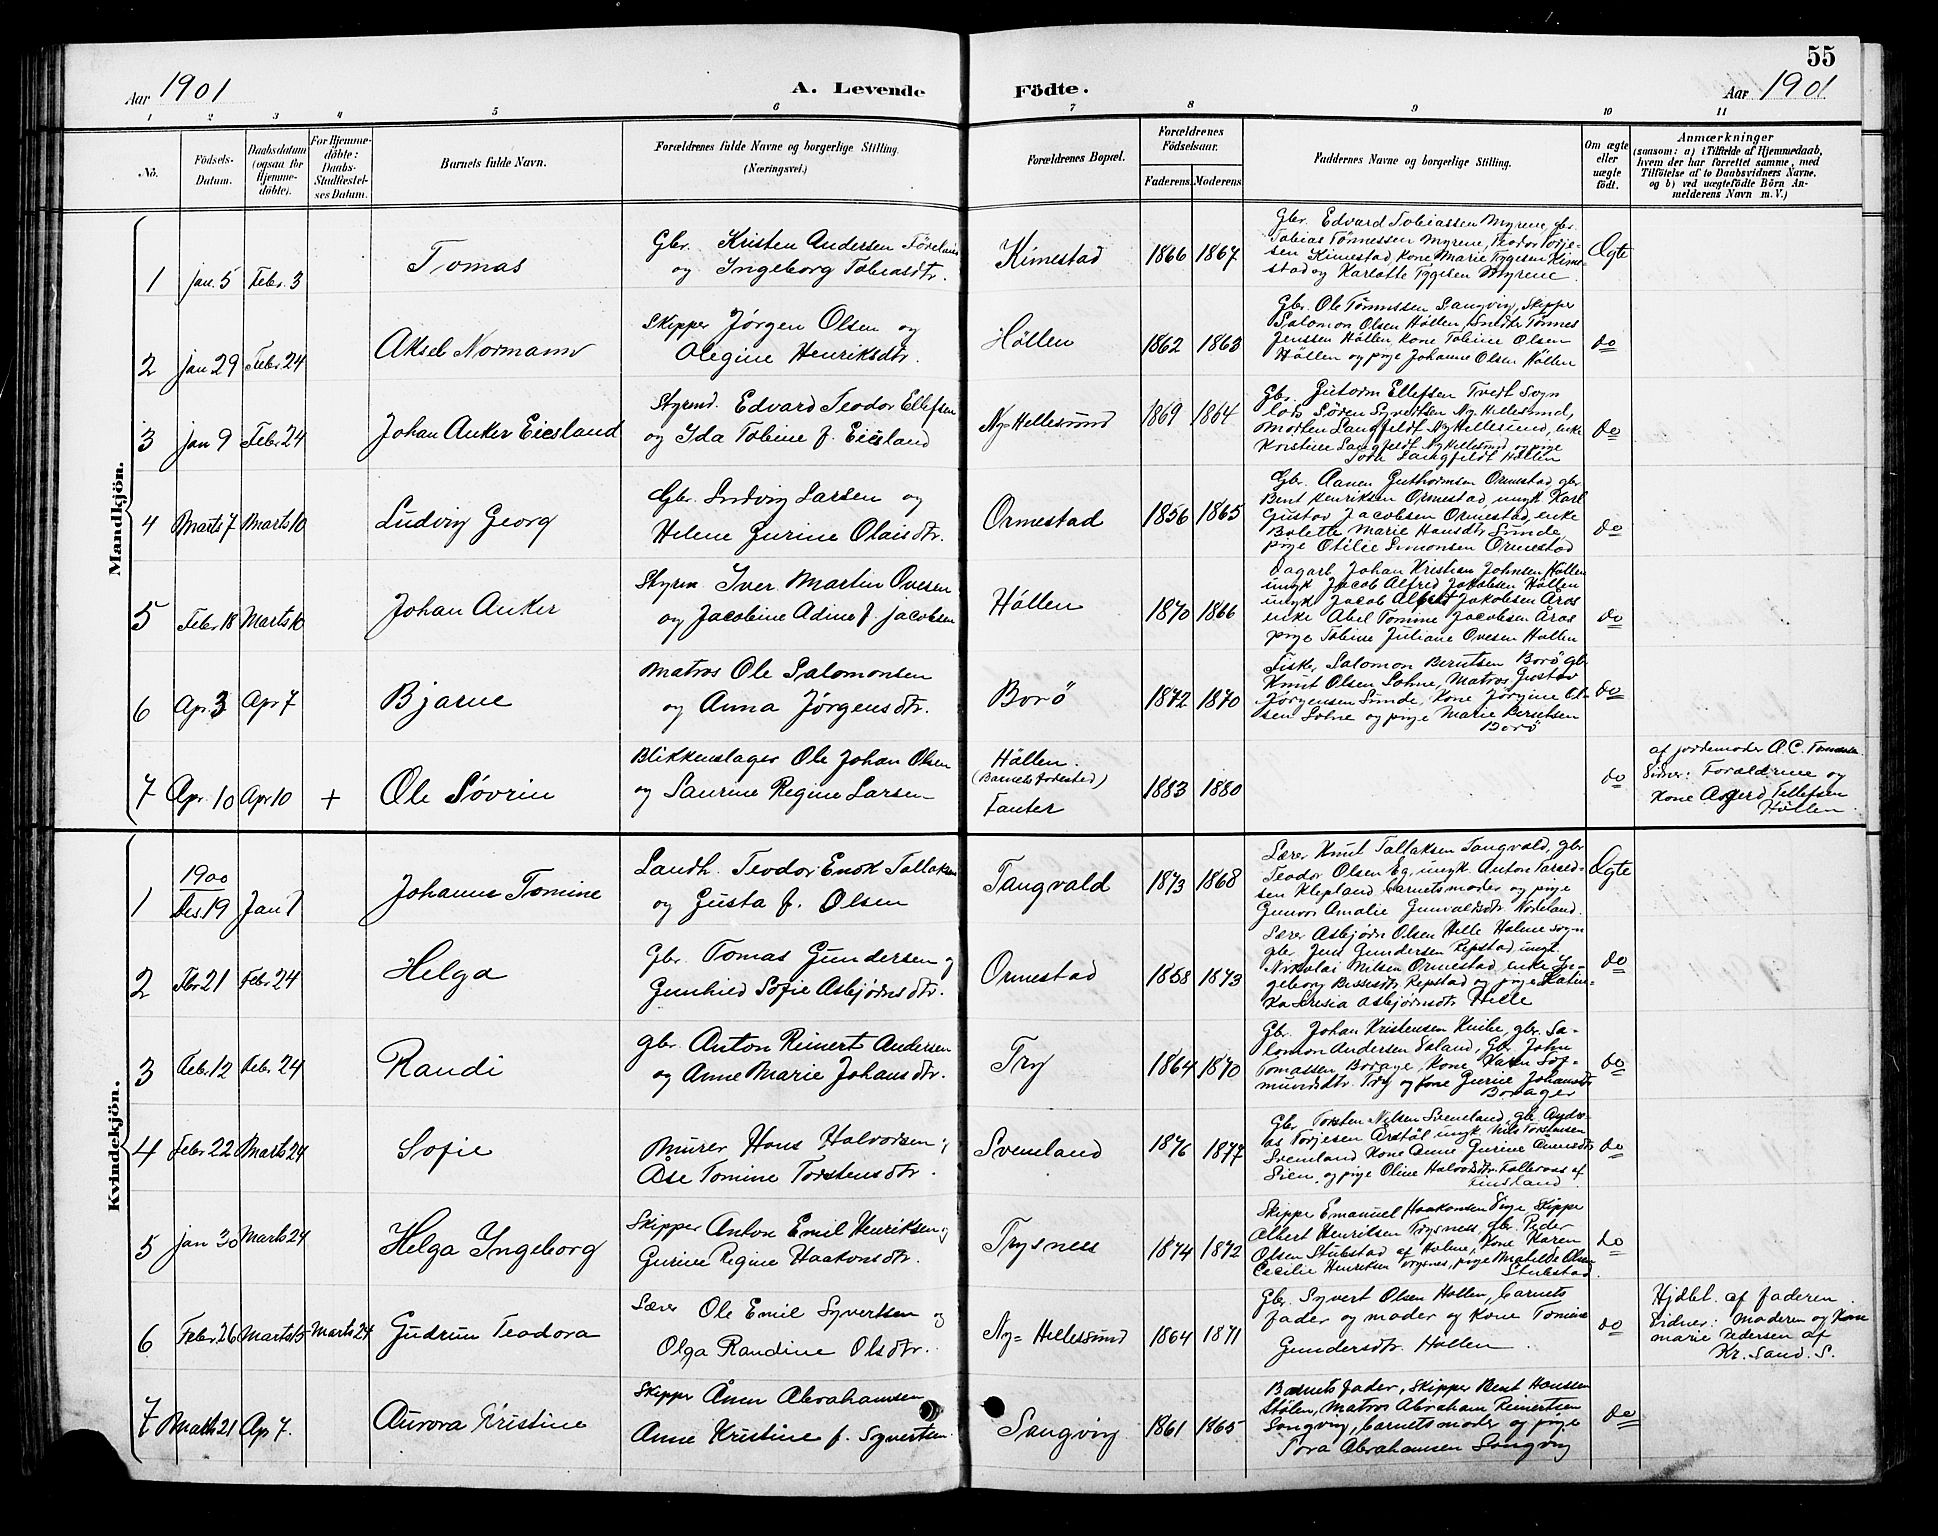 55
Aar 1901
A. Levende Födte.
Aar 1901
1 2 3 4 5 6 7 8 9 10 11
No.
Födsels-Datum.
Daabsdatum (ogsaa for Hjemme-döbte).
For Hjemme-döbte: Daabs-Stadfæstel-ses Datum.
Barnets fulde Navn.
Forældrenes fulde Navne og borgerlige Stilling.
(Næringsvei.)
Forældrenes Bopæl.
Forældrenes Födselsaar.
Faderens Moderens
Faddernes Navne og borgerlige Stilling.
Om ægte eller uægte födt.
Anmærkninger
(saasom: a) i Tilfælde af Hjemmedaab,
hvem der har forrettet samme, med
Tilföielse af to Daabsvidners Navne,
og b) ved uægtefödte Börn An-
melderens Navn m. V.)
Mandkjön.
1 Jan. 5 Febr. 3 Tomas
Gbr. Kristen Andersen
og Ingeborg Tobiasdtr.
Kimestad 1866 1867
Gbr. Edvard Tobiassen Myrene, gbr.
Tobias Tönnessen Myrene, Teodor Torje-
sen Kimestad, Kone Marie Tygesen Kime-
stad og Karlotte Tygesen Myrene
Ægte
2 Jan 29 Febr 24 Aksel Normann
Skipper Jörgen Olsen og
Olegine Henriksdtr.
Höllen 1862 1863
Gbr. Ole Tönnessen Langvig, Skipper
Salomon Olsen Höllen, Tönnes
Jenssen Höllen, Kone Tobine Olsen
Höllen og pige Johanne Olsen Höllen
do
3 Jan 9 Febr. 24 Johan Anker Eiesland
Styrmd. Edvard Teodor Ellefsen
og Ida Tobine f. Eiesland
Ny-Hellesund 1869 1864
Gbr. Gutorm Ellefsen Tvedt Sogn
lods Sören Syvertsen Ny Hellesund,
Morten Langfeldt Ny Hellesund, enke
Kristine Langfeldt Ny Hellesund og pige
Tora Langfeldt Höllen
do
4 Marts 7 Marts 10 Ludvig Georg
Gbr. Ludvig Larsen og
Helene Gurine Olaisdtr.
Ormestad 1856 1865
Gbr. Aanen Guthormsen Ormestad, gbr.
Bent Henriksen Ormestad, ungk. Karl
Gustav Jacobsen Ormestad, enke
Bolette Marie Hansdtr. Sunde,
pige Otilie Simonsen Ormestad
do
5 Febr. 18 Marts 10 Johan Anker
Styrm. Iver Martin Ovesen
og Jacobine Adine f. Jacobsen
Höllen 1870 1866
Dagarb. Johan Kristian Johnsen Höllen
ungk Jacob Alfred Jakobsen Höllen
ungk Jacob Alfred Jakobsen Åros
enke Abel Tomine Jacobsen Åros
pige Tobine Juliane Ovesen Höllen
do
6 Apr. 3 Apr 7 Bjarne
Matros Ole Salomonsen
og Anna Jörgensdtr.
Borö 1872 1870
Fisker Salomon Berntsen Borö gbr
Knut Olsen Sohne, Matros Gustav
Jörgensen Sunde, Kone Jörgine Ol-
sen Sohne og pige Marie Berntsen
Borö
do
7 Apr. 10 Apr 10 + Ole Sövrin
Blikkenslager Ole Johan Olsen
og Laurine Regine Larsen
Höllen.
(Barnets fodested)
Fanter
1883 1880
do
af jordemoder A. C. Tönnesen
Vidner: Forældrene og
Kone Asgerd Tellefsen
Höllen.
Kvindekjön.
1 1900 Des 19 Jan 1 Johanne Tomine
Landh. Teodor Enok Tallaksen
og Gusta f. Olsen
Tangvald 1873 1868
Lærer Knut Tallaksen Tangvald, gbr
Teodor Olsen Eg, ungk Anton Tarald-
sen Klepland barnets moder og pige
Gunvor Amalie Gunvaldsdtr. Nodeland.
Ægte
2 Jbr 21 Febr 24 Helga
Gbr. Tomas Gundersen og
Gunhild Sofie Asbjörnsdtr.
Ormestad 1858 1873
Lærer Asbjörn Olsen Helle Holme sogn
gbr. Jens Gundersen Repstad, ungk.
Nikolai Nilsen Ormestad, enke In-
geborg Repstad og pige
Asbjörnsdtr Helle
do
3 Febr. 12 Febr. 24 Randi
Gbr. Anton Reinert Andersen
og Anne Marie Johansdtr.
Try 1864 1870
Gbr. Johan Kristensen Knibe, gbr. Sa-
lomon Andersen Usland, Gbr. John
Tomassen Borage, Kone Karen Sig-
mundsdtr. Try og Kone Gurine Johansdtr.
Borager
do
4 Febr 22 Marts 24 Sofie
Murer Hans Halvorsen og
Åse Tomine Torstensdtr.
Sveneland 1876 1877
Gbr. Torsten Nilsen Sveneland, gbr Andre-
as Torjesen Årstöl ungk Nils Torstensen
Sveneland Kone Anne Gurine Evensdtr
Lien og pige Oline Halvorsdtr. af
Finsland.
do
5 Jan 30 Marts 24 Helga Ingeborg
Skipper Anton Emil Henriksen og
Gurine Regine Haakonsdtr.
Trysnes 1874 1872
Skipper Emanuel Haakonsen Skipper
Albert Henriksen Trysnes, gbr. Peder
Olsen Stubstad af Holme, Kone Karen
Cecilie Henriksen Trysnes, pige Matilde Olsen
Stubstad.
do
6 Febr. 26 Marts 15 Marts 24 Gudrun Teodora
Lærer Ole Emil Syvertsen og
Olga Randine Olsdtr.
Ny-Hellesund 1864 1871
Gbr. Syvert Olsen Höllen, barnets
fader og moder og Kone Tomine
Gundersdtr. Höllen.
do
Hjdbt. af faderen.
Vidner: Moderen og Kone
Marie Pedersen af
Kr. Sand. S.
7 Marts 21 Apr 7. Aurora Kristine
Skipper Ånen Abrahamsen
Anne Kristine f. Syvertsen
Langvig 1861 1865
Barnets fader, Skipper Bent Hanssen
Stölen, Matros Abraham Reinertsen
Songvig, barnets moder og pige
Tora Abrahamsen Songvig
do